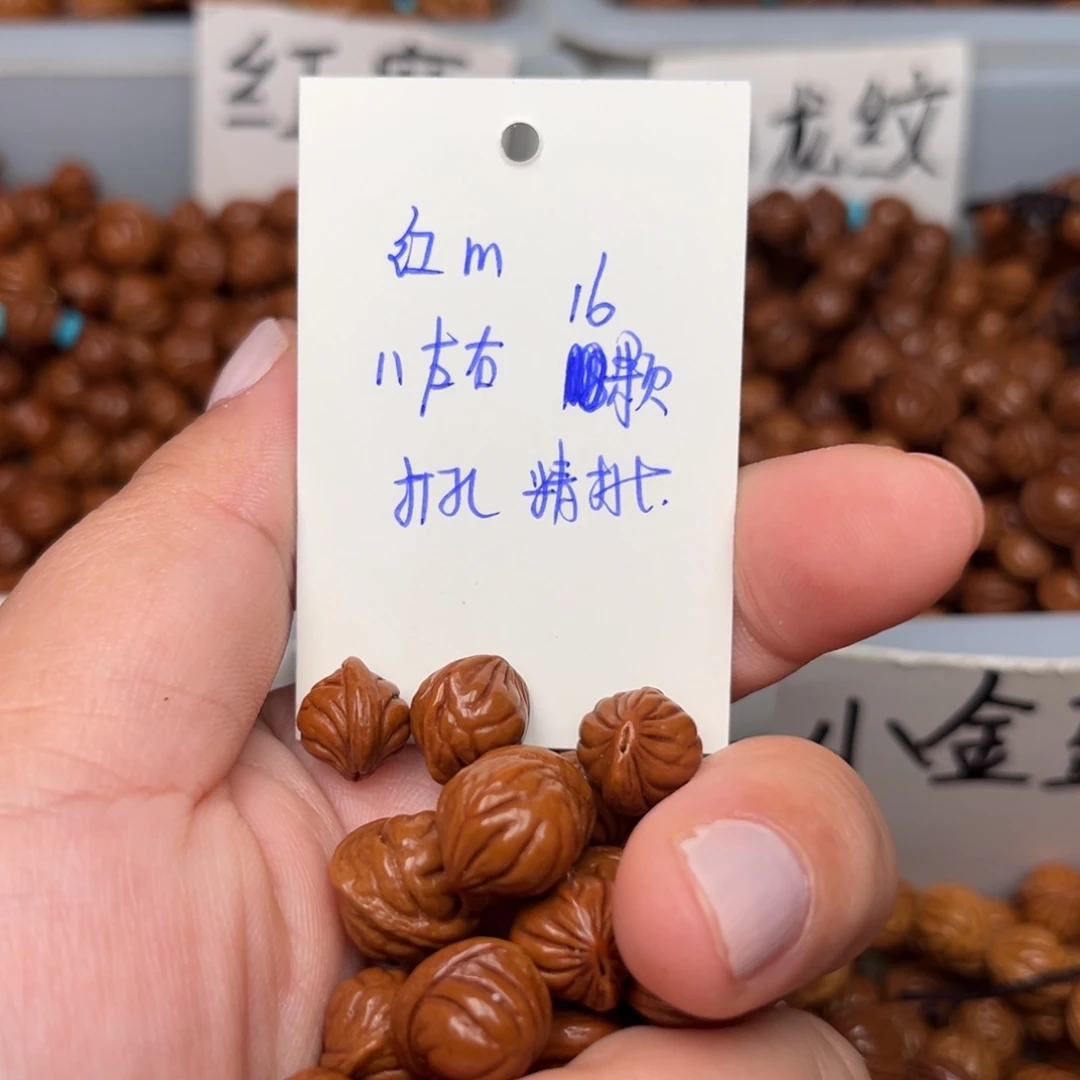 红
龙纹
红m
16
11左右 颗
打孔 精挑.
小金